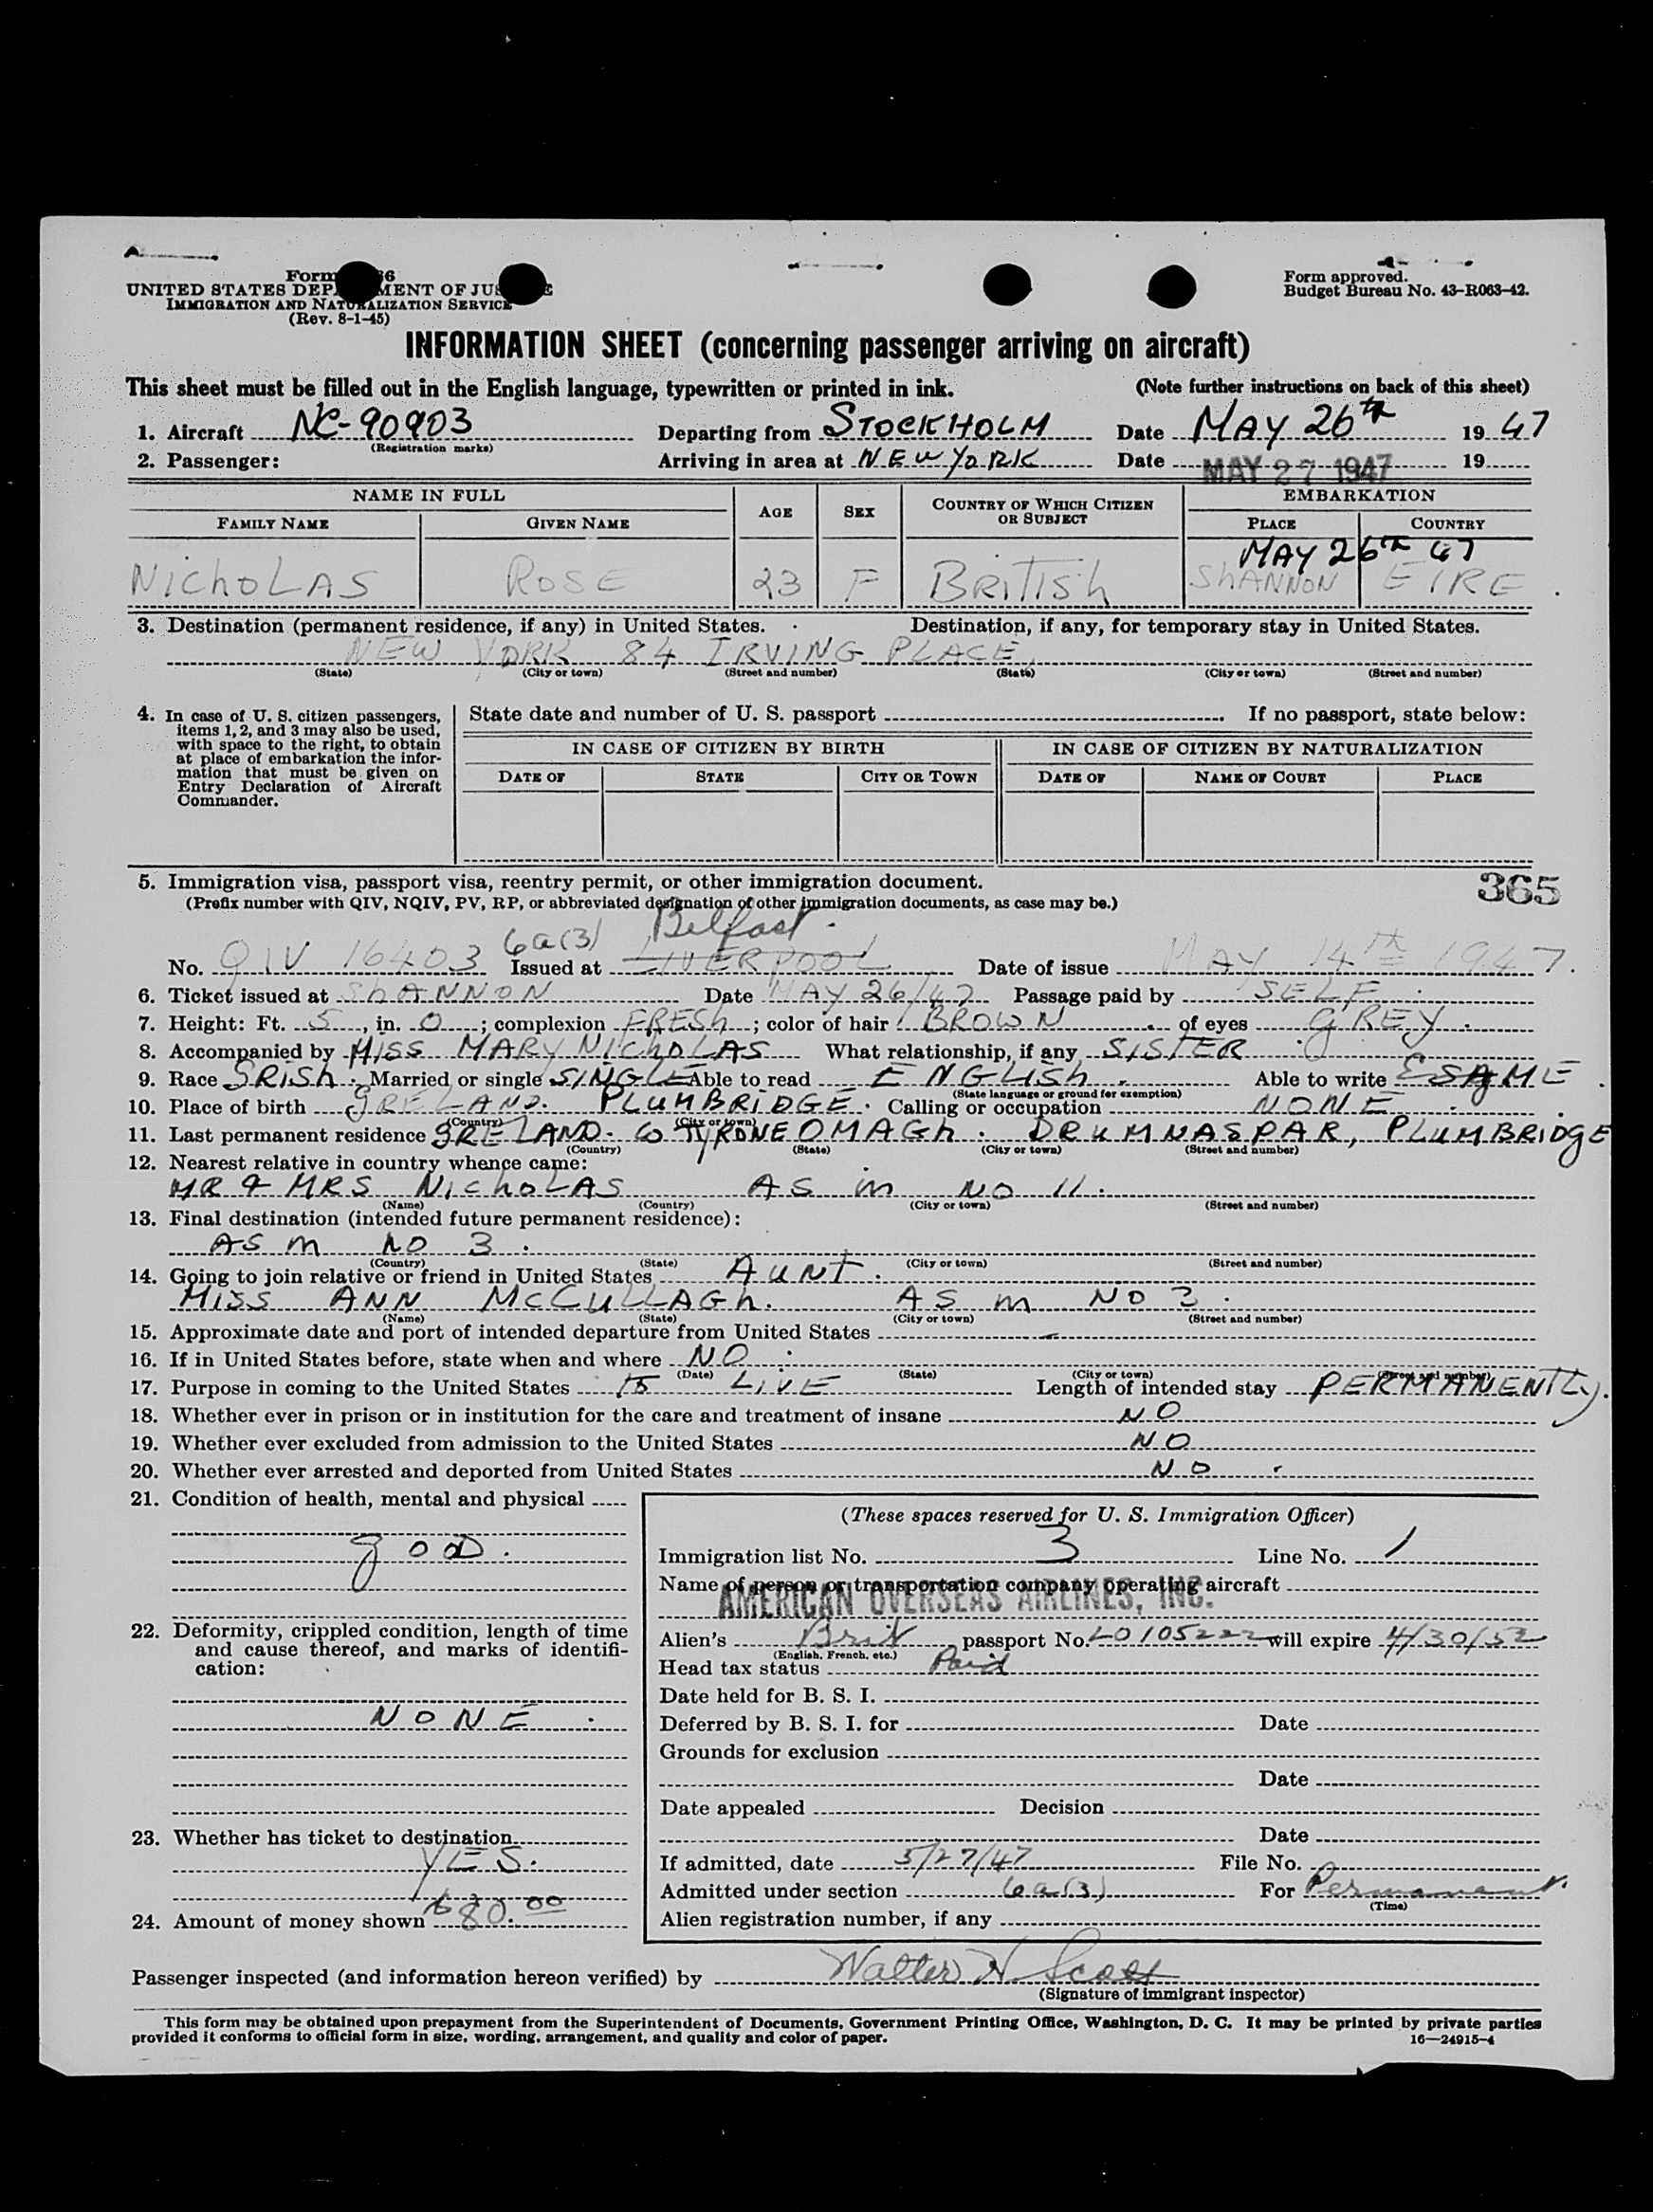 Form 6
UNITED STATES DEP MENT OF JUS E
IMMIGRATION AND NATURALIZATION SERVICE
(Rev. 8-1-45)
Form approved.
Budget Bureau No. 43-R063-42.
INFORMATION SHEET (concerning passenger arriving on aircraft)
This sheet must be filled out in the English language, typewritten or printed in ink. (Note further instructions on back of this sheet)
1. Aircraft NC-90903 Departing from STOCKHOLM Date MAY 26th 1947
(Registration marks)
2. Passenger: Arriving in area at NEW YORK Date MAY 27 1947 19
NAME IN FULL AGE SEX COUNTRY OF WHICH CITIZEN OR SUBJECT EMBARKATION
FAMILY NAME GIVEN NAME PLACE COUNTRY
MAY 26th 47
NichoLAS ROSE 23 F BRITISh ShANNON EIRE.
3. Destination (permanent residence, if any) in United States. Destination, if any, for temporary stay in United States.
NEW YORK 84 IRVING PLACE
(State) (City or town) (Street and number) (State) (City or town) (Street and number)
4. In case of U. S. citizen passengers, items 1, 2, and 3 may also be used, with space to the right, to obtain at place of embarkation the information that must be given on Entry Declaration of Aircraft Commander.
State date and number of U. S. passport If no passport, state below:
IN CASE OF CITIZEN BY BIRTH IN CASE OF CITIZEN BY NATURALIZATION
DATE OF STATE CITY OR TOWN DATE OF NAME OF COURT PLACE
5. Immigration visa, passport visa, reentry permit, or other immigration document. 365
(Prefix number with QIV, NQIV, PV, RP, or abbreviated designation of other immigration documents, as case may be.)
Belfast
No. QIV 16403 6a(3) Issued at LIVERPOOL Date of issue MAY 14th 1947.
6. Ticket issued at ShANNON Date MAY 26/47 Passage paid by SELF.
7. Height: Ft. 5, in. 0; complexion FRESh; color of hair BROWN of eyes gREY.
8. Accompanied by MISS MARY NichoLAS What relationship, if any SISTER
9. Race IRISh. Married or single SINGLE Able to read ENGLISh. Able to write SAME.
(State language or ground for exemption)
10. Place of birth IRELAND. PLUMBRIDGE. Calling or occupation NONE.
(Country) (City or town)
11. Last permanent residence IRELAND. CO TYRONE OMAGh. DRUMNASPAR, PLUMBRIDgE
(Country) (State) (City or town) (Street and number)
12. Nearest relative in country whence came:
MR & MRS NichoLAS AS in NO 11.
(Name) (Country) (City or town) (Street and number)
13. Final destination (intended future permanent residence):
AS in NO 3.
(Country) (State) (City or town) (Street and number)
14. Going to join relative or friend in United States AUNT.
MISS ANN McCULLAGh. AS in NO 3.
(Name) (State) (City or town) (Street and number)
15. Approximate date and port of intended departure from United States —
16. If in United States before, state when and where NO.
(Date) (State) (City or town) (Street and number)
17. Purpose in coming to the United States TO LIVE Length of intended stay PERMANENTLY.
18. Whether ever in prison or in institution for the care and treatment of insane NO
19. Whether ever excluded from admission to the United States NO
20. Whether ever arrested and deported from United States NO.
21. Condition of health, mental and physical
gooD.
22. Deformity, crippled condition, length of time and cause thereof, and marks of identification:
NONE.
23. Whether has ticket to destination
YES.
24. Amount of money shown $80.00
(These spaces reserved for U. S. Immigration Officer)
Immigration list No. 3 Line No. 1
Name of person or transportation company operating aircraft
AMERICAN OVERSEAS AIRLINES, INC.
Alien's Brit passport No. LO105222 will expire 4/30/52
(English, French, etc.)
Head tax status Paid
Date held for B. S. I.
Deferred by B. S. I. for Date
Grounds for exclusion
Date
Date appealed Decision
Date
If admitted, date 5/27/47 File No.
Admitted under section 6a(3) For Permanent.
(Time)
Alien registration number, if any
Passenger inspected (and information hereon verified) by Walter H. Scott
(Signature of immigrant inspector)
This form may be obtained upon prepayment from the Superintendent of Documents, Government Printing Office, Washington, D. C. It may be printed by private parties
provided it conforms to official form in size, wording, arrangement, and quality and color of paper. 16—24915-4